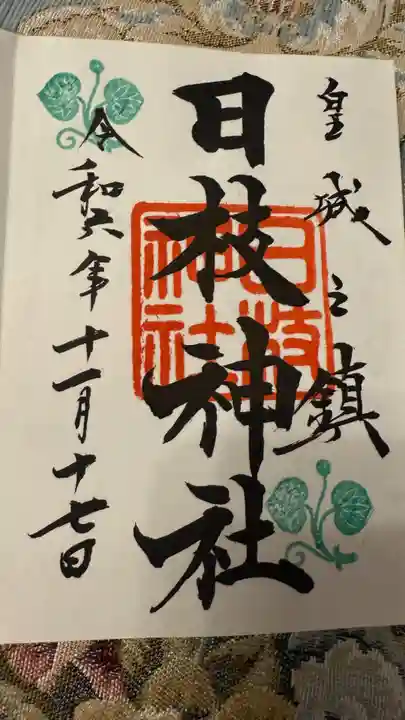 皇城之鎮
日枝神社
日枝神社
令和六年十一月十七日